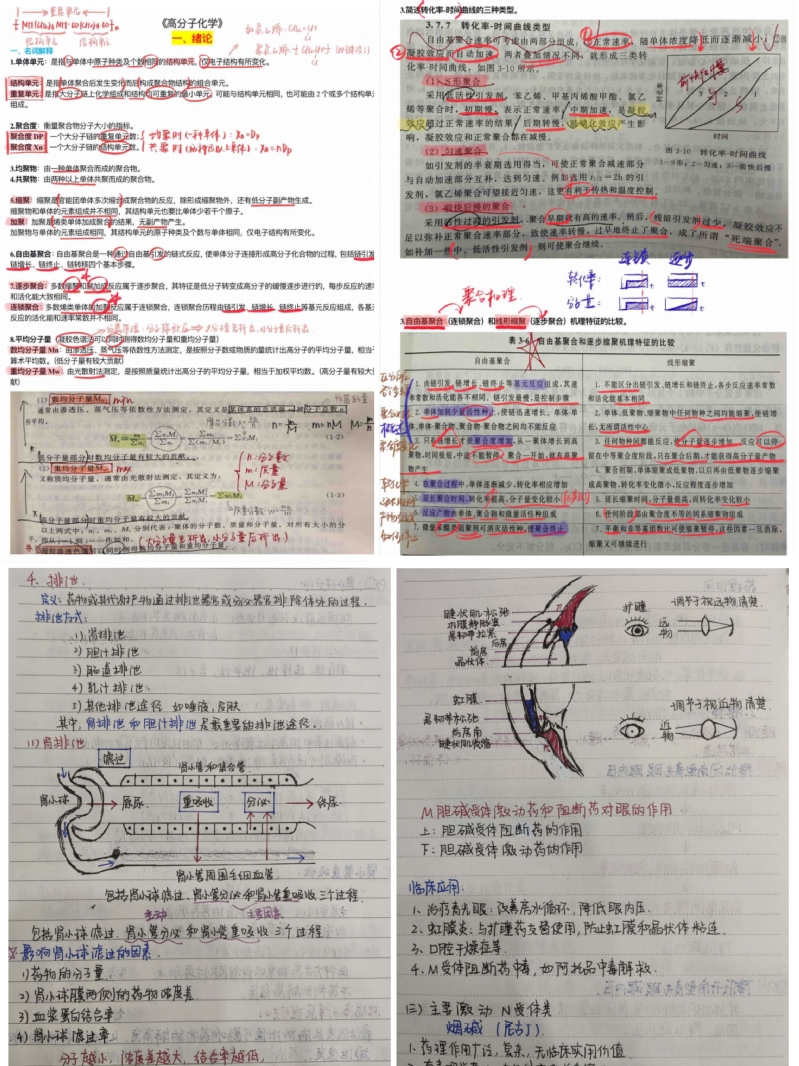 《高分子化学》
一、绪论
一、名词解释
1.单体单元：是指与单体中原子种类及个数相同的结构单元，仅电子结构有所变化。
结构单元：是指单体聚合后发生变化而后构成聚合物结构的组合单元。
重复单元：是指大分子链上化学组成和结构均可重复的最小单元，可能与结构单元相同，也可能由2个或多个结构单元
组成。
2.聚合度：衡量聚合物分子大小的指标。
聚合度 DP：一个大分子链的重复单元数
聚合度 Xn：一个大分子链的结构单元数。
3.均聚物：由一种单体聚合而成的聚合物。
4.共聚物：由两种以上单体共聚而成的聚合物。
5.缩聚：缩聚是官能团单体多次缩合成聚合物的反应，除形成缩聚物外，还有低分子副产物生成。
缩聚物和单体的元素组成并不相同，其结构单元也要比单体少若干个原子。
加聚：加聚是烯类单体加成聚合的结果，无副产物产生。
加聚物与单体的元素组成相同，其结构单元的原子种类及个数与单体相同，仅电子结构有所变化。
6.自由基聚合：自由基聚合是一种通过自由基引发的链式反应，使单体分子连接形成高分子化合物的过程，包括链引发
链增长、链终止、链转移四个基本步骤。
7.逐步聚合：多数缩聚和聚加成反应属于逐步聚合，其特征是低分子转变成高分子的缓慢逐步进行的，每步反应的速
和活化能大致相同。
连锁聚合：多数烯类单体的加聚反应属于连锁聚合，连锁聚合历程由链引发、链增长、链终止等基元反应组成，各基
反应的活化能和速率常数并不相同。
8.平均分子量（凝胶色谱法可以同时得数均分子量和重均分子量）
数均分子量 Mn：由渗透压、蒸气压等依数性方法测定，是按照分子数或物质的量统计出高分子的平均分子量，相当
算术平均数。（低分子量有较大贡献）
重均分子量 Mw：由光散射法测定，是按照质量统计出高分子的平均分子量，相当于加权平均数。（高分子量有较大
献）
(1) 数均分子量
通常由渗透压、蒸气压等依数性方法测定，其定义是
所平均。
(1-2)
低分子量部分对数均分子量有较大的贡献。
(2) 重均分子量
又称质均分子量，通常由光散射法测定，其定义为：
n:分子数
m:质量
M:分子量
(1-3)
高分子量部分对重均分子量有较大的贡献。
(大分子量先析出,小分子量后析出)
3.简述转化率-时间曲线的三种类型。
3.7.7 转化率-时间曲线类型
自由基聚合速率可考虑由两部分组成：①正常速率，随单体浓度降低而逐渐减小；②
凝胶效应而自动加速。两者叠加情况不同，就形成三类转
化率-时间曲线，如图 3-10 所示。
(1) S形聚合
采用低活性引发剂，苯乙烯、甲基丙烯酸甲酯、氯乙
烯等聚合时，初期慢，表示正常速率；中期加速，是凝胶
效应超过正常速率的结果；后期转慢，玻璃化效应产生影
响，凝胶效应和正常聚合都在减慢。
(2) 匀速聚合
如引发剂的半衰期选用得当，可使正常聚合减速部分
与自动加速部分互补，达到匀速。例如选用 t1/2=2h 的引
发剂，氯乙烯聚合可望接近匀速，这更有利于传热和温度控制。
(3) 前快后慢的聚合
采用活性过高的引发剂，聚合早期就有高的速率。稍后，残留引发剂过少，凝胶效应不
足以弥补正常聚合部分，致使速率转慢，过早地终止了聚合，成了所谓“死端聚合”。
如补加一些中、低活性引发剂，则可使聚合继续。
转化率
时间
图 3-10 转化率-时间曲线
1—S形；2—匀速；3—前快后慢
连锁 逐步
转化率:
分子量:
聚合机理
3.自由基聚合（连锁聚合）和线形缩聚（逐步聚合）机理特征的比较。
表 3-6 自由基聚合和逐步缩聚机理特征的比较
自由基聚合 线形缩聚
1. 由链引发、链增长、链终止等基元反应组成，其速
率常数和活化能各不相同。引发最慢，是控制步骤
2. 单体加到少量活性种上，使链迅速增长。单体-单
体、单体-聚合物、聚合物-聚合物之间均不能反应
3. 只有链增长才使聚合度增加，从一聚体增长到高
聚物，时间很短，中途不能暂停。聚合一开始，就有高聚
物产生
4. 在聚合过程中，单体逐渐减少，转化率相应增加
5. 延长聚合时间，转化率提高，分子量变化较小
6. 反应产物由单体、聚合物和微量活性种组成
7. 微量苯醌类阻聚剂可消灭活性种，使聚合终止
1. 不能区分出链引发、链增长和链终止，各步反应速率常数
和活化能基本相同
2. 单体、低聚物、缩聚物中任何物种之间均能缩聚，使链增
长，无所谓活性中心
3. 任何物种间都能反应，使分子量逐步增加。反应可以停
留在中等聚合度阶段，只在聚合后期，才能获得高分子产物
4. 聚合初期，单体缩聚成低聚物，以后再由低聚物逐步缩聚
成高聚物，转化率变化微小，反应程度逐步增加
5. 延长缩聚时间，分子量提高，而转化率变化较小
6. 任何阶段都由聚合度不等的同系缩聚物组成
7. 平衡和非等基团数比可使缩聚暂停，这些因素一旦消除，
缩聚又可继续进行
4、排泄.
定义：药物或其代谢产物通过排泄器官或分泌器官排除体外的过程.
排泄方式：
1) 肾排泄
2) 胆汁排泄
3) 肠道排泄
4) 乳汁排泄
5) 其他排泄途径 如唾液,皮肤
其中,肾排泄和胆汁排泄是最重要的排泄途径.
(1) 肾排泄
滤过
肾小管和集合管
肾小球 原尿 重吸收 分泌 终尿
肾小管周围毛细血管
包括肾小球滤过,肾小管分泌和肾小管重吸收三个过程.
主动 主要因素
包括肾小球滤过,肾小管分泌和肾小管重吸收三个过程
影响肾小球滤过的因素.
1) 药物的分子量
2) 肾小球膜两侧的药物浓度差
3) 血浆蛋白结合率
4) 肾小球滤过率
分子越小,浓度差越大,结合率越低,
睫状肌松弛
巩膜静脉窦
悬韧带拉紧
后房
前房
晶状体
扩瞳
远物
调节于视远物清楚.
虹膜
悬韧带松弛
前房角
睫状肌收缩
近物
调节于视近物清楚.
M胆碱受体激动药和阻断药对眼的作用
上：胆碱受体阻断药的作用
下：胆碱受体激动药的作用
临床应用.
1、治疗青光眼：改善房水循环,降低眼内压.
2、虹膜炎：与扩瞳药交替使用,防止虹膜和晶状体粘连.
3、口腔干燥症等.
4、M受体阻断药中毒,如阿托品中毒解救.
(二) 主要激动N受体类
烟碱（尼古丁）.
1、药理作用广泛,复杂,无临床实用价值